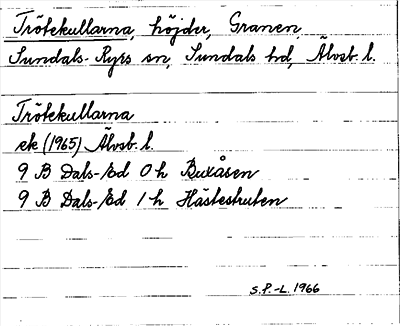 Trötekullarna, höjder, Granen
Sundals-Ryrs sn, Sundals hd, Älvsb. l.
Trötekullarna
ek (1965) Älvsb. l.
9 B Dals-Ed 0 h Buxåsen
9 B Dals-Ed 1 h Hästestruten
S.P.-L. 1966